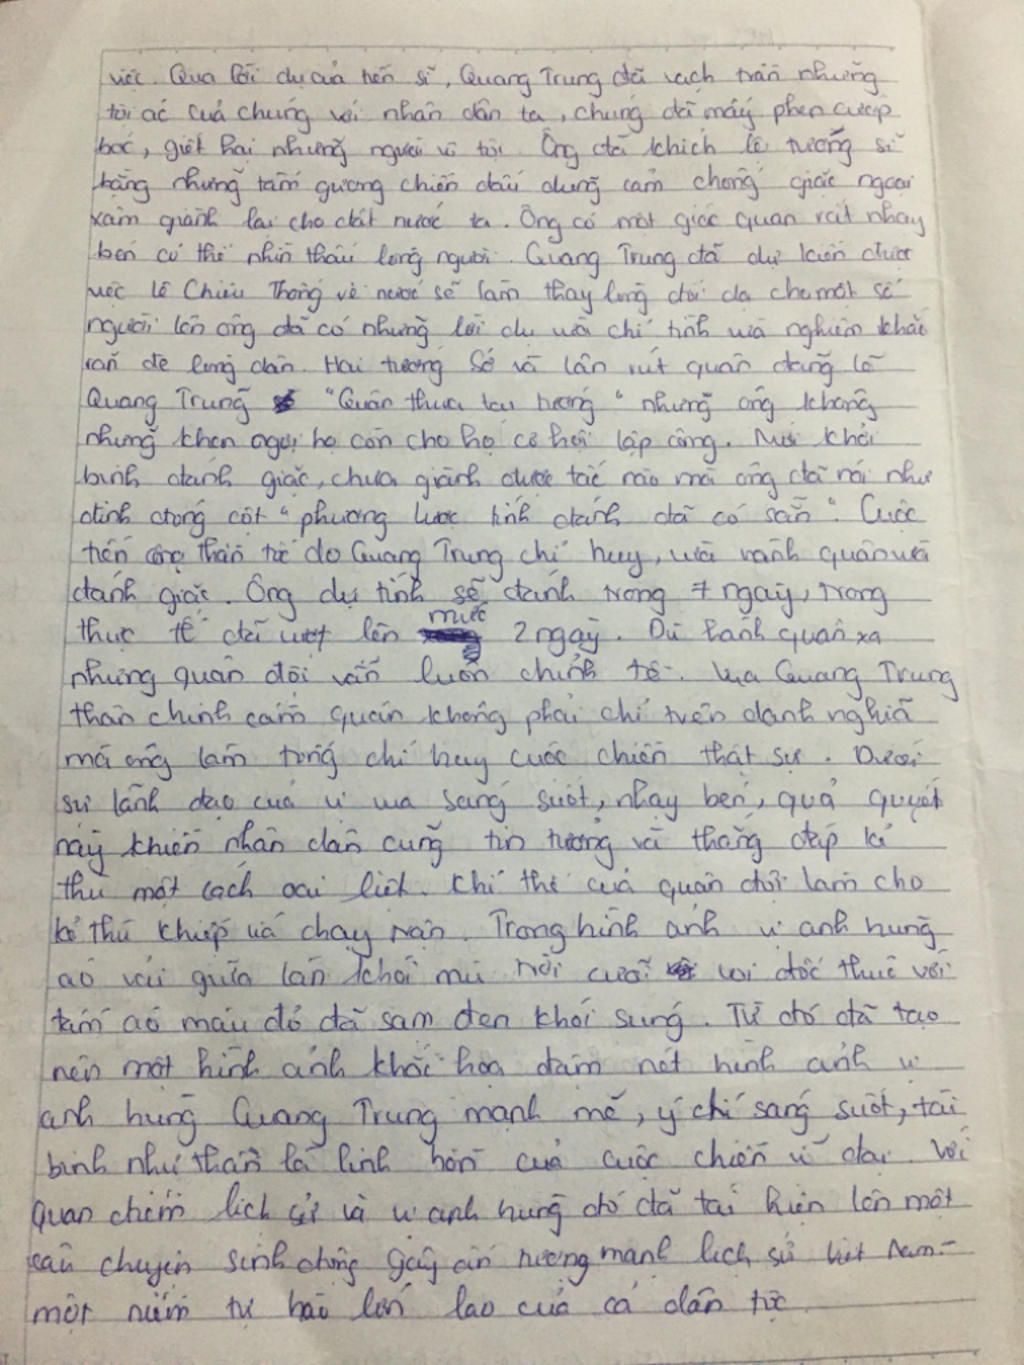 việc. Qua lời dụ của tiến sĩ, Quang Trung đã vạch trần những
tội ác của chúng với nhân dân ta, chúng đã mấy phen cướp
bóc, giết hại những người vô tội. Ông đã khích lệ tướng sĩ
bằng những tấm gương chiến đấu dũng cảm chống giặc ngoại
xâm giành lại cho đất nước ta. Ông có một giác quan rất nhạy
bén có thể nhìn thấu lòng người. Quang Trung đã dự kiến được
việc Lê Chiêu Thống về nước sẽ làm thay lòng đổi dạ cho một số
người lên ông đã có những lời dụ vừa chí tình vừa nghiêm khắc
răn đe lòng dân. Hai tướng Sở và Lân rút quân đáng lẽ
Quang Trung "Quân thua tại tướng" nhưng ông không
những khen ngợi họ còn cho họ cơ hội lập công. Mới khởi
binh đánh giặc, chưa giành được tấc nào mà ông đã nói như
đinh đóng cột "phương lược tính đánh đã có sẵn". Cuộc
tiến công thần tốc do Quang Trung chỉ huy, vừa hành quân vừa
đánh giặc. Ông dự tính sẽ đánh trong 7 ngày, trong
thực tế đã vượt lên mức 2 ngày. Dù hành quân xa
nhưng quân đội vẫn luôn chỉnh tề. Vua Quang Trung
thân chinh cầm quân không phải chỉ trên danh nghĩa
mà ông làm tổng chỉ huy cuộc chiến thật sự. Dưới
sự lãnh đạo của vị vua sáng suốt, nhạy bén, quả quyết
này khiến nhân dân cũng tin tưởng và thắng đẹp kẻ
thù một cách oai liệt. Khí thế của quân đội làm cho
kẻ thù khiếp vía chạy nạn. Trong hình ảnh vị anh hùng
áo vải giữa làn khói mù trời cưỡi voi đốc thúc với
tấm áo màu đỏ đã sạm đen khói súng. Từ đó đã tạo
nên một hình ảnh khắc họa đậm nét hình ảnh vị
anh hùng Quang Trung mạnh mẽ, ý chí sáng suốt, tài
binh như thần là linh hồn của cuộc chiến vĩ đại. Với
quan điểm lịch sử và vị anh hùng đó đã tái hiện lên một
câu chuyện sinh động gây ấn tượng mạnh lịch sử Việt Nam -
một niềm tự hào lớn lao của cả dân tộc